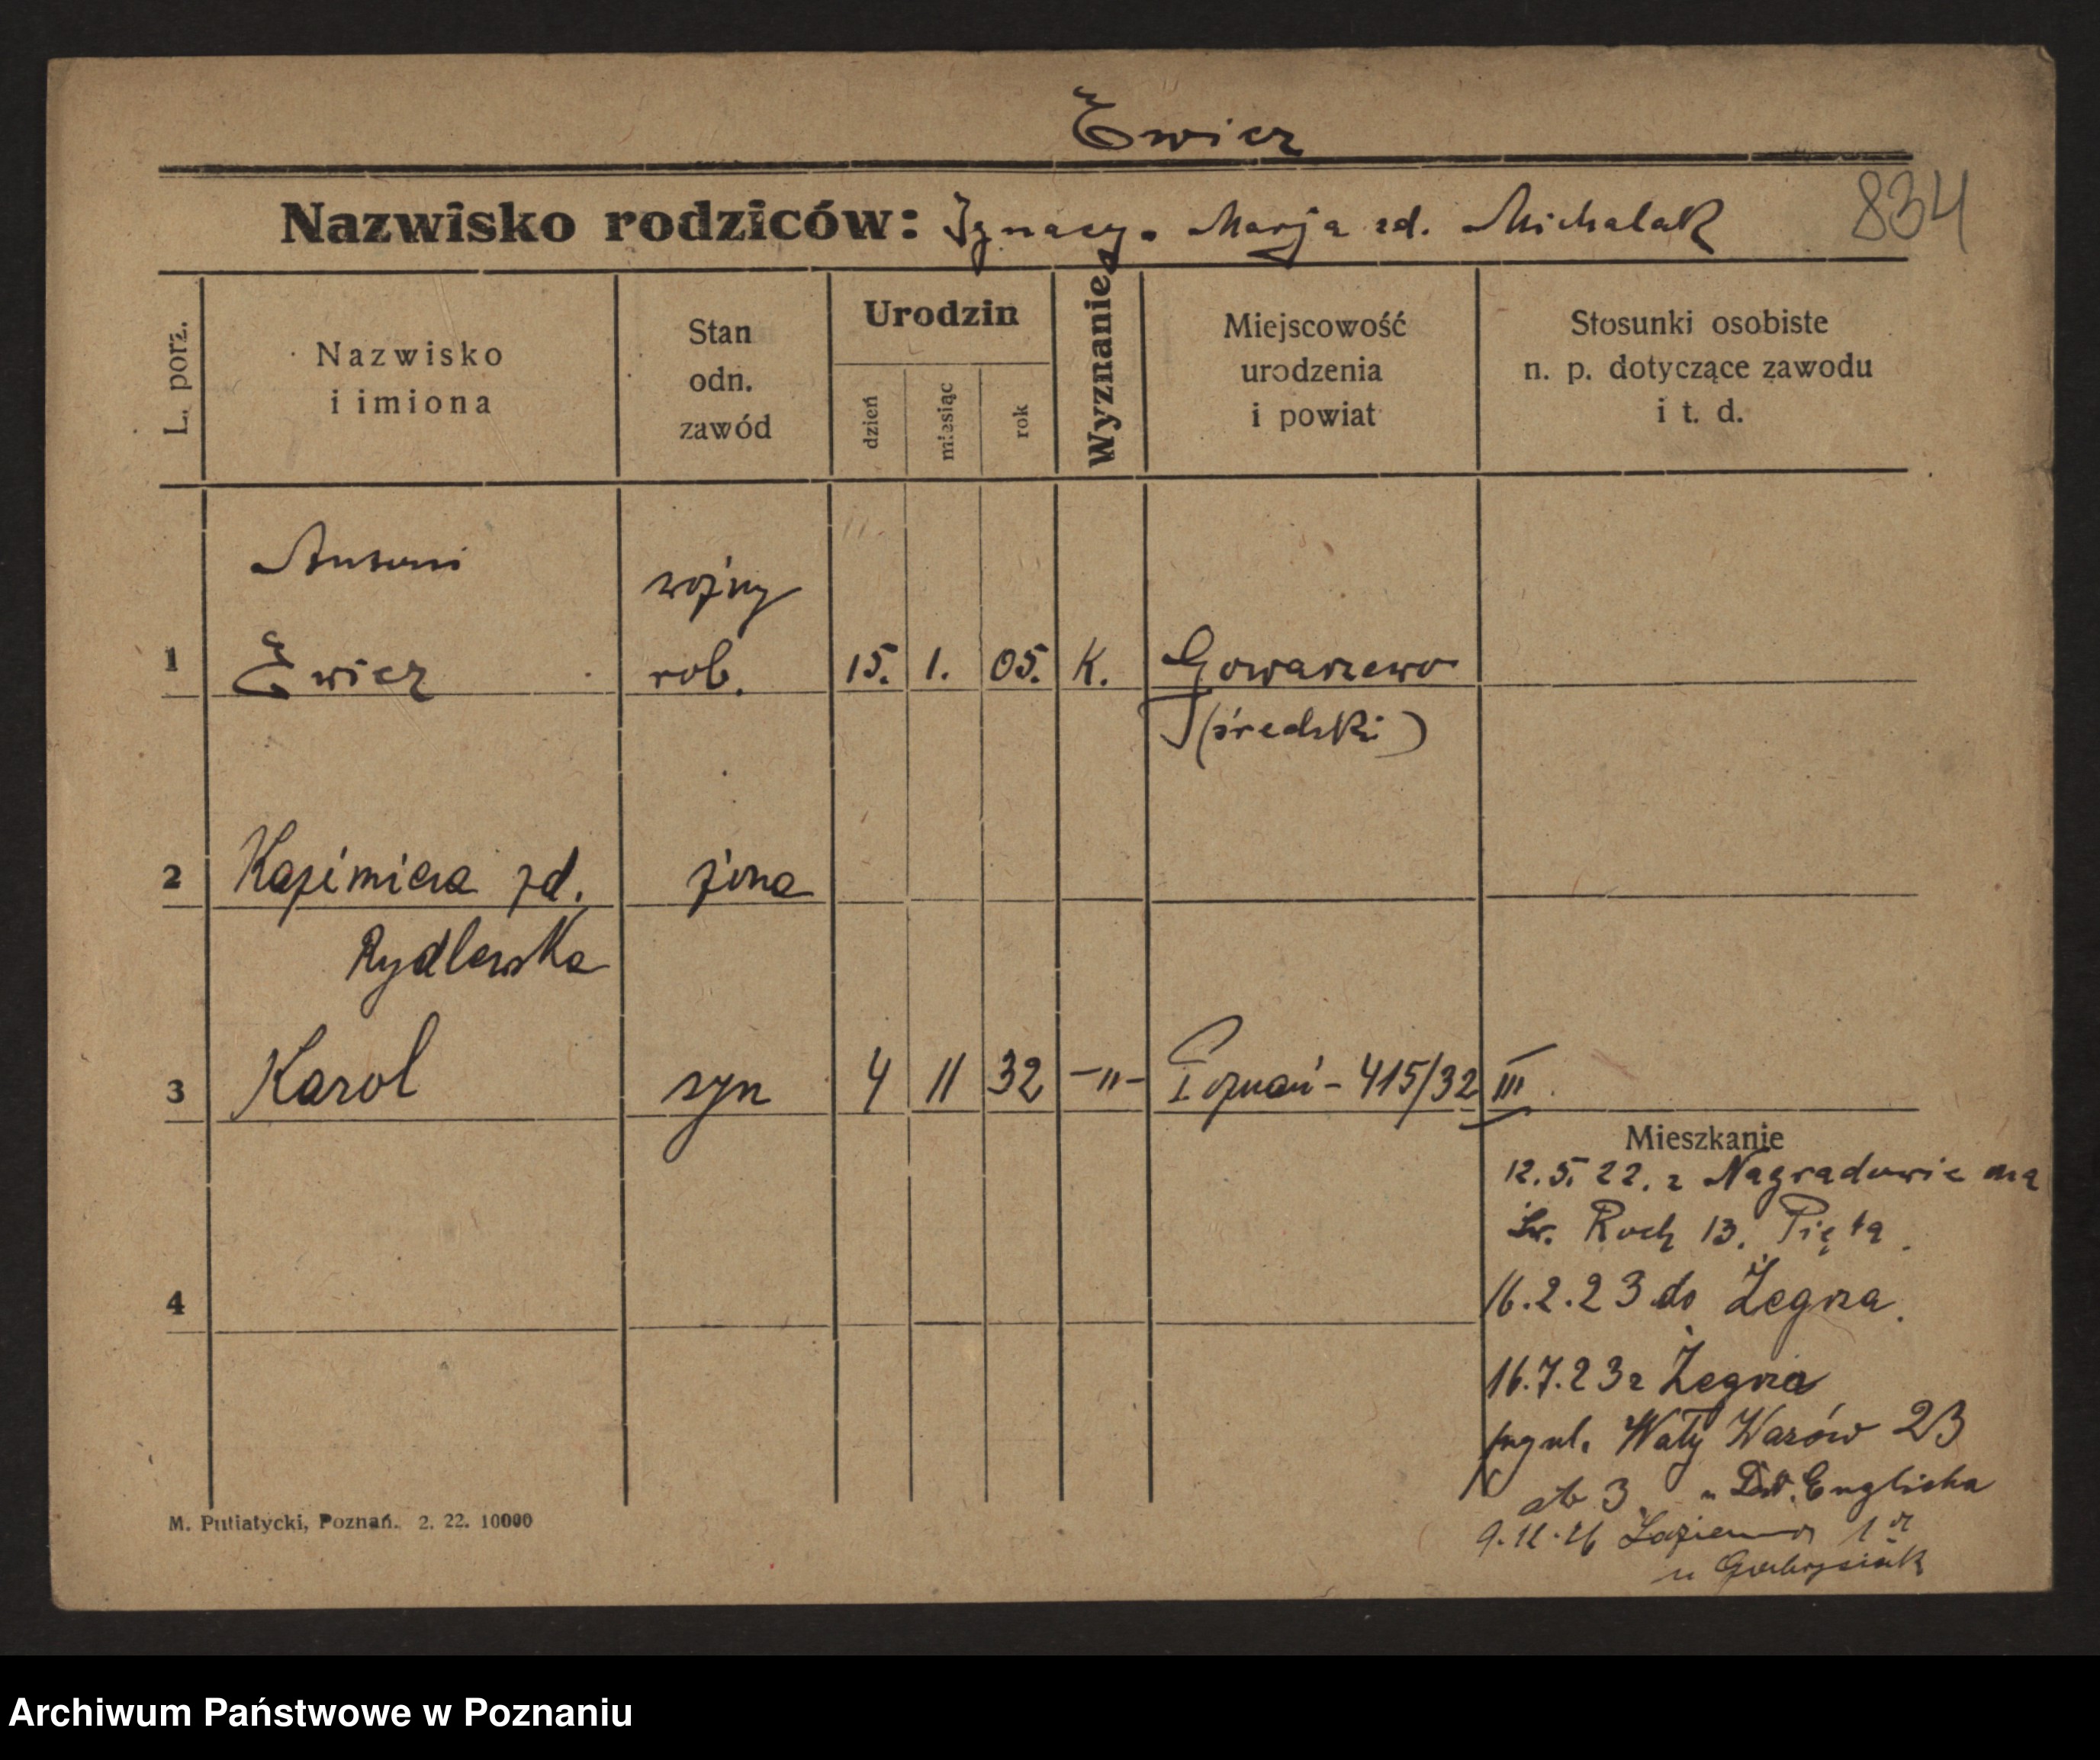 Ewicz
Nazwisko rodziców: Ignacy. Marja zd. Michalak
834
L. porz.
Nazwisko
i imiona
Stan
odn.
zawód
Urodzin
dzień
miesiąc
rok
Wyznanie
Miejscowość
urodzenia
i powiat
Stosunki osobiste
n. p. dotyczące zawodu
i t. d.
Antoni
1 Ewicz rob. 15. 1. 05. K. Gowarzewo
(średzki)
2 Kazimiera zd. żona
Rydlewska
3 Karol syn 4 11 32 -"- Poznań - 415/32 III
Mieszkanie
12.5.22. z Nagradowic na
Św. Roch 13. Pięta.
16.2.23 do Żegrza.
16.7.23 z Żegrza
ul. Wały Wazów 23
3
9.12.26 1
u
4
M. Putiatycki, Poznań. 2. 22. 10000
Archiwum Państwowe w Poznaniu